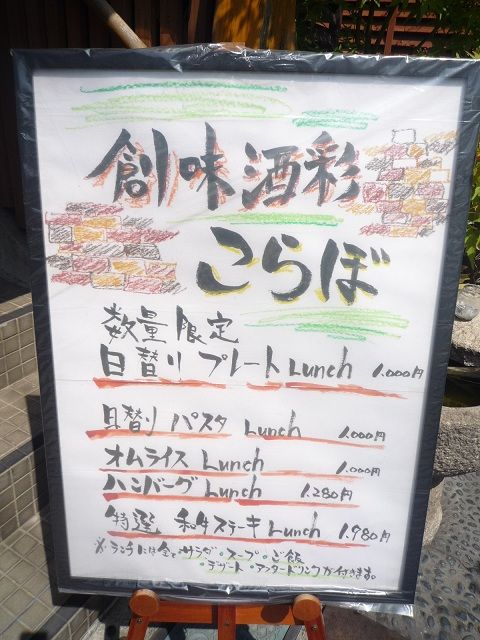 創味酒彩
こらぼ
数量限定
日替り プレート Lunch 1.000円
日替り パスタ Lunch 1.000円
オムライス Lunch 1.000円
ハンバーグ Lunch 1.280円
特選 和牛ステーキ Lunch 1.980円
※ランチには全てサラダ・スープ・ご飯
・デザート・アフタードリンクが付きます。